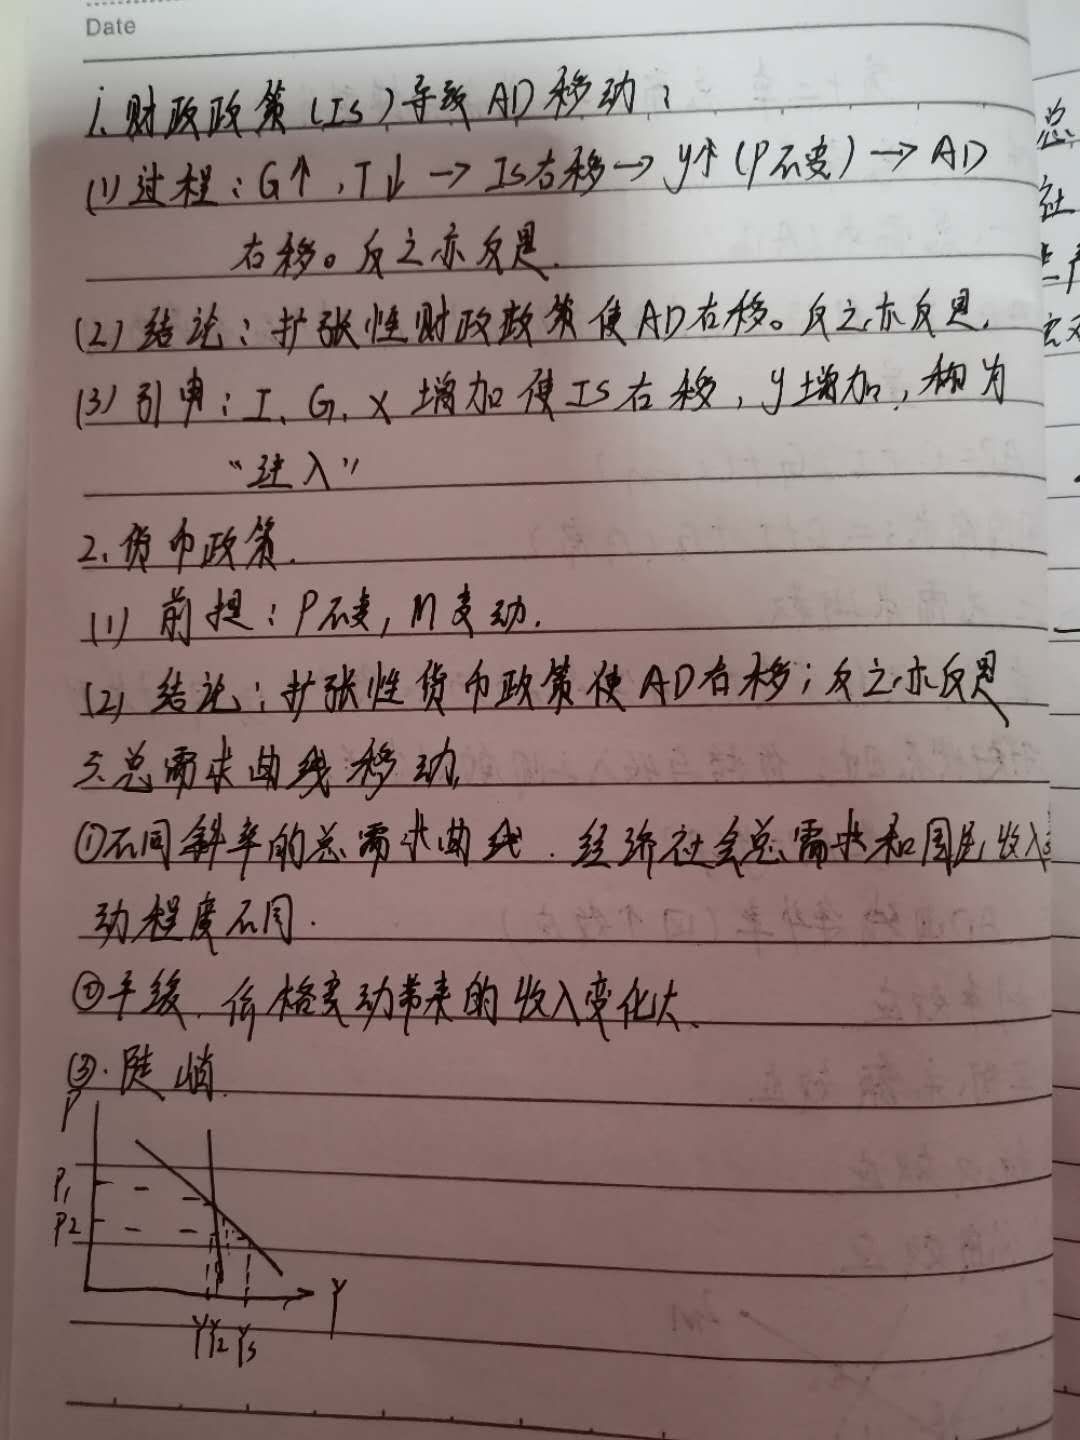 Date
1.财政政策(IS)导致AD移动:
(1)过程:G↑,T↓→IS右移→y↑(P不变)→AD
右移。反之亦反是.
(2)结论:扩张性财政政策使AD右移。反之亦反是.
(3)引申:I、G、X增加使IS右移,y增加,称为
“注入”
2.货币政策.
(1)前提:P不变,M变动.
(2)结论:扩张性货币政策使AD右移;反之亦反是
三总需求曲线移动.
①不同斜率的总需求曲线.经济社会总需求和国民收入
动程度不同.
②平缓.价格变动带来的收入变化大.
③.陡峭.
P
P1
P2
Y
Y Y2 Y3
总
社